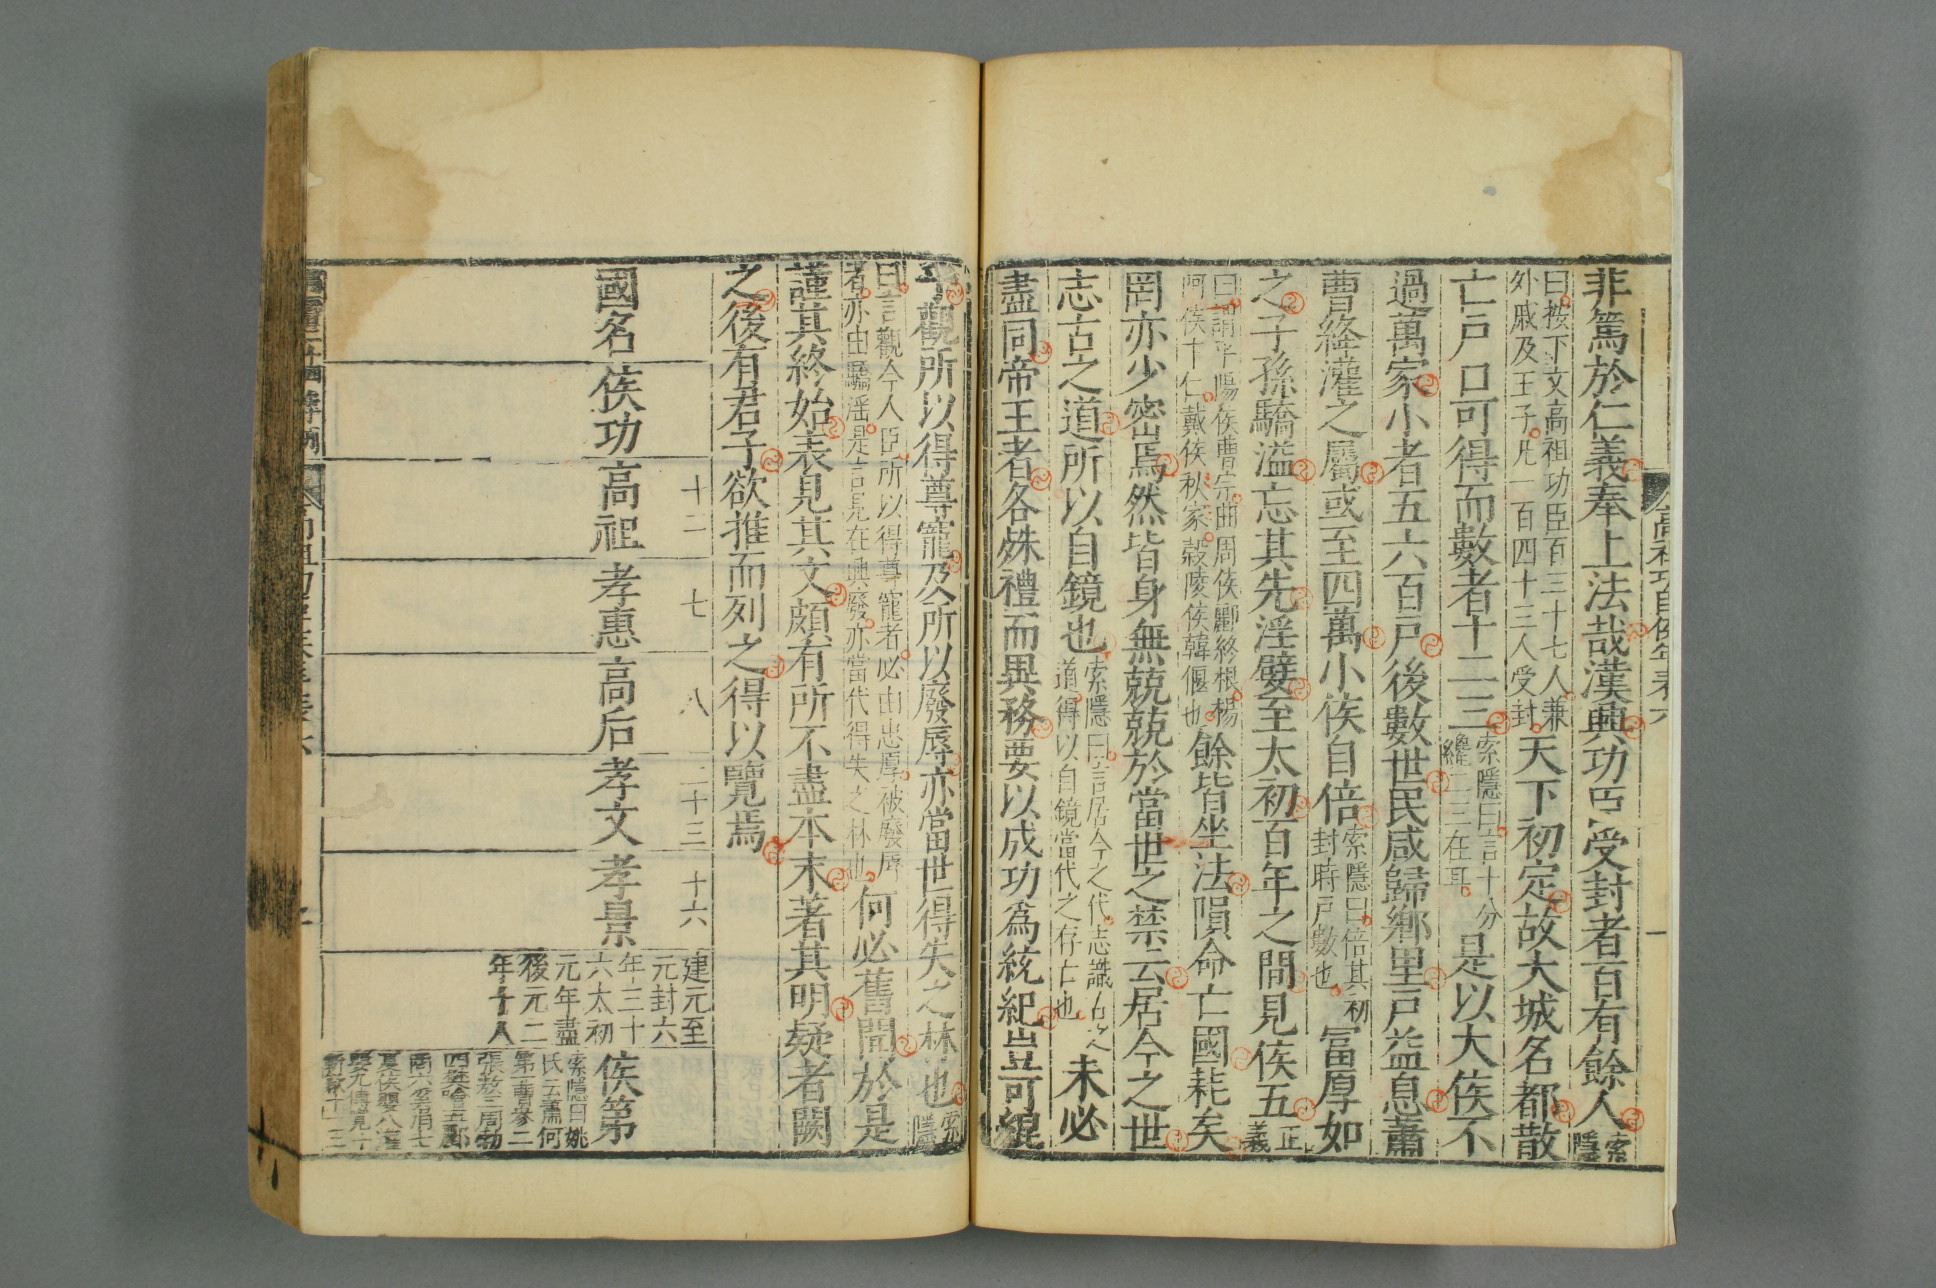 高祖功臣侯年表六
非篤於仁義奉上法哉漢興功臣受封者百有餘人索隱
曰按下文高祖功臣百三十七人兼
外戚及王子凡一百四十三人受封
天下初定故大城名都散
亡戸口可得而數者十二三
索隱曰言十分
纔二三在耳
是以大侯不
過萬家小者五六百戸後數世民咸歸鄉里戸益息蕭
曹絳灌之屬或至四萬小侯自倍
索隱曰倍其初
封時戸數也
冨厚如
之子孫驕溢忘其先淫嬖至太初百年之間見侯五正義
曰謂平陽侯曹宗曲周侯酈終根楊
阿侯十仁戴侯秋家榖陵侯韓偃也
餘皆坐法隕命亡國耗矣
罔亦少密焉然皆身無兢兢於當世之禁云居今之世
志古之道所以自鏡也
索隱曰言居今之代志識古之
道得以自鏡當代之存亡也
未必
盡同帝王者各殊禮而異務要以成功爲統紀豈可緄
乎觀所以得尊寵及所以廢辱亦當世得失之林也索隱
曰言觀今人臣所以得尊寵者必由忠厚被廢辱
者亦由驕淫是言見在興廢亦當代得失之林也
何必舊聞於是
謹其終始表見其文頗有所不盡本末著其明疑者闕
之後有君子欲推而列之得以覽焉
國名
侯功
高祖
十二
孝惠
七
高后
八
孝文
二十三
孝景
十六
建元至
元封六
年三十
六太初
元年盡
後元二
年十八
侯第
索隱曰姚
氏云蕭何
第一曹參二
張敖三周勃
四樊噲五酈
商六奚涓七
夏侯嬰八灌
嬰九傅寬十
靳歙十一王